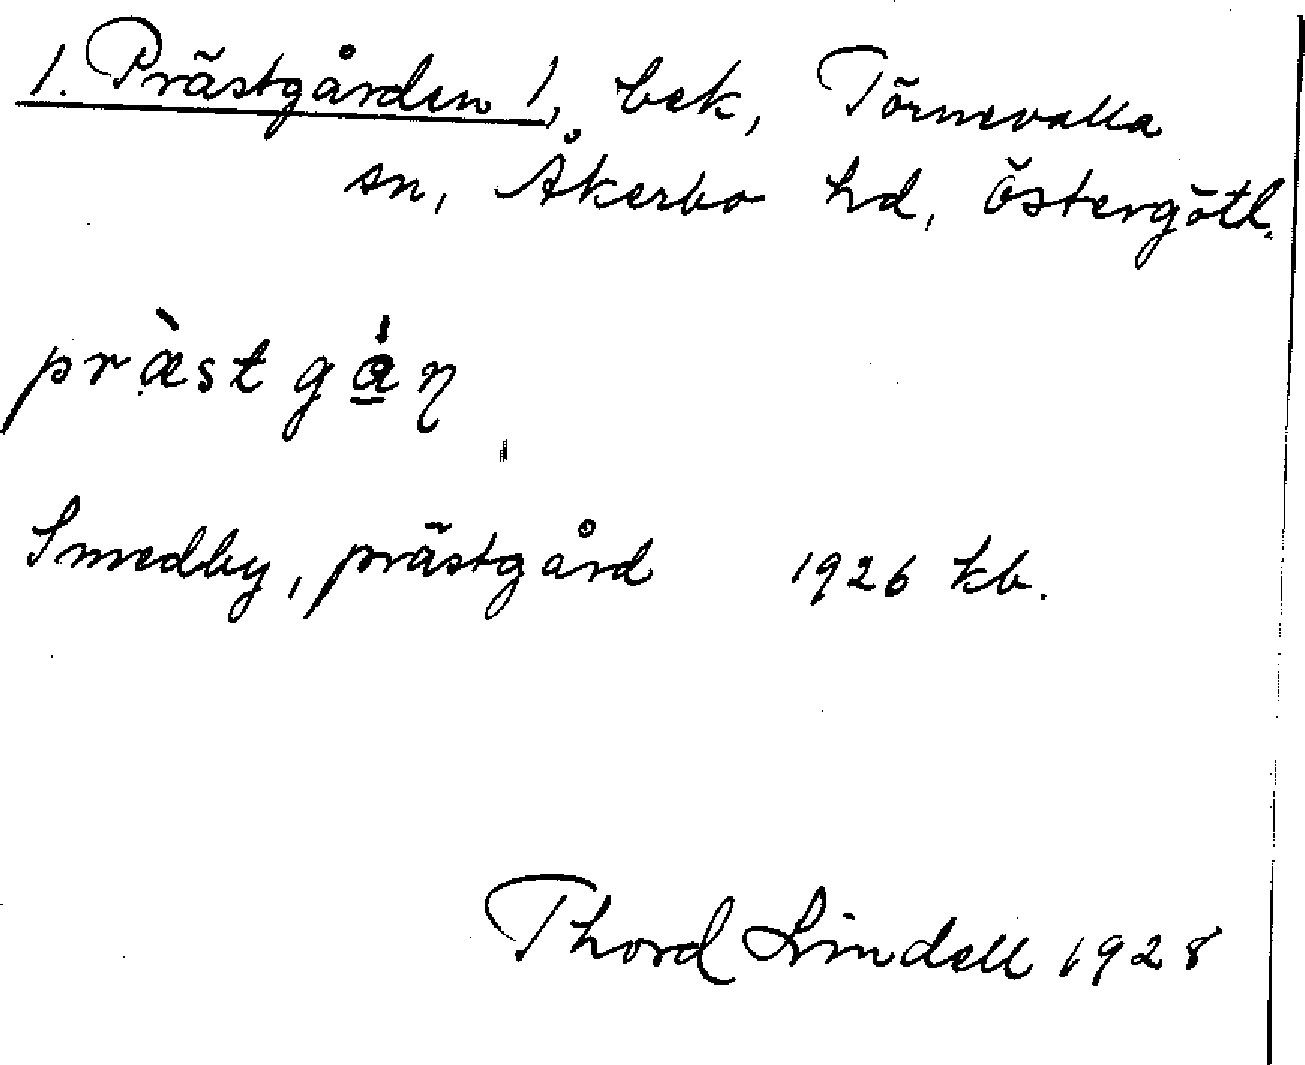 1. Prästgården 1, bek, Törnevalla
sn, Åkerbo hd, Östergötl.
præ̀stgɑ̲̀ɳ
Smedby, prästgård 1926 kb.
Thord Lindell 1928